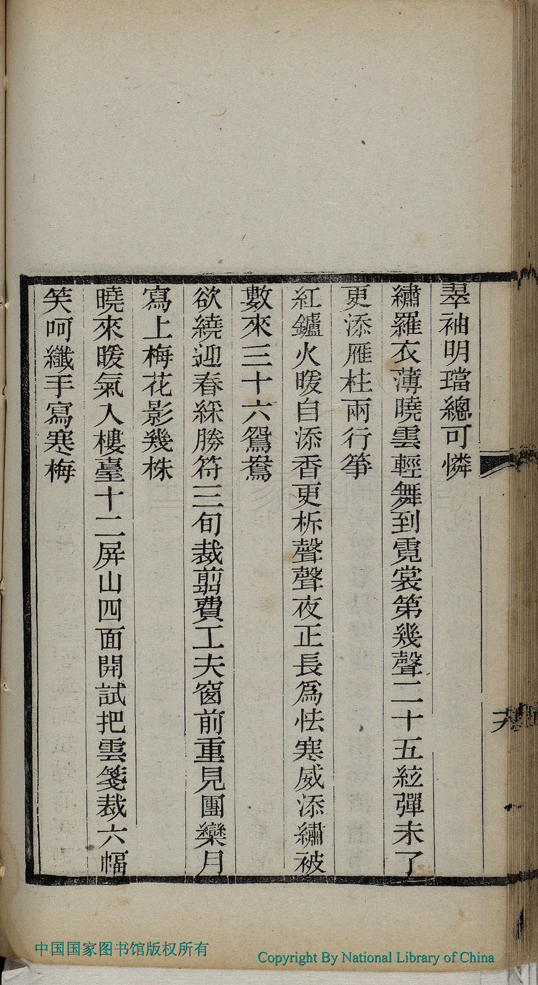 翠袖明璫總可憐
繡羅衣薄曉雲輕舞到霓裳第幾聲二十五絃彈未了
更添雁柱兩行箏
紅鑪火暖自添香更柝聲聲夜正長為怯寒威添繡被
數來三十六鴛鴦
欲繞迎春綵勝符三旬裁剪費工夫窗前重見團欒月
寫上梅花影幾株
曉來暖氣入樓臺十二屏山四面開試把雲箋裁六幅
笑呵纖手寫寒梅
中国国家图书馆版权所有
Copyright By National Library of China